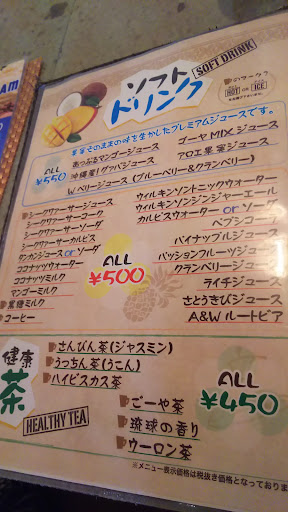 AM
ソフト
ドリンク
SOFT DRINK
のマークう
HOT or ICE
果実そのままの味を生かしたプレミアムジュースです。
ALL
¥550
あっぷるマンゴージュース
沖縄産!グァバジュース
Wベリージュース(ブルーベリー&クランベリー)
ゴーヤMIXジュース
アロエ果実ジュース
シークヮァーサージュース
シークヮァーサーコーク
シークヮァーサーソーダ
シークヮァーサーカルピス
タンカンジュース or ソーダ
ココナッツウォーター
ココナッツミルク
マンゴーミルク
黒糖ミルク
コーヒー
ALL
¥500
ウィルキンソントニックウォーター
ウィルキンソンジンジャーエール
カルピスウォーター or ソーダ
ペプシコーラ
パイナップルジュース
パッションフルーツジュース
クランベリージュース
ライチジュース
さとうきびジュース
A&W ルートビア
健康
茶
HEALTHY TEA
さんぴん茶(ジャスミン)
うっちん茶(うこん)
ハイビスカス茶
ごーや茶
琉球の香り
ウーロン茶
ALL
¥450
※メニュー表示価格は税抜き価格となっておりま